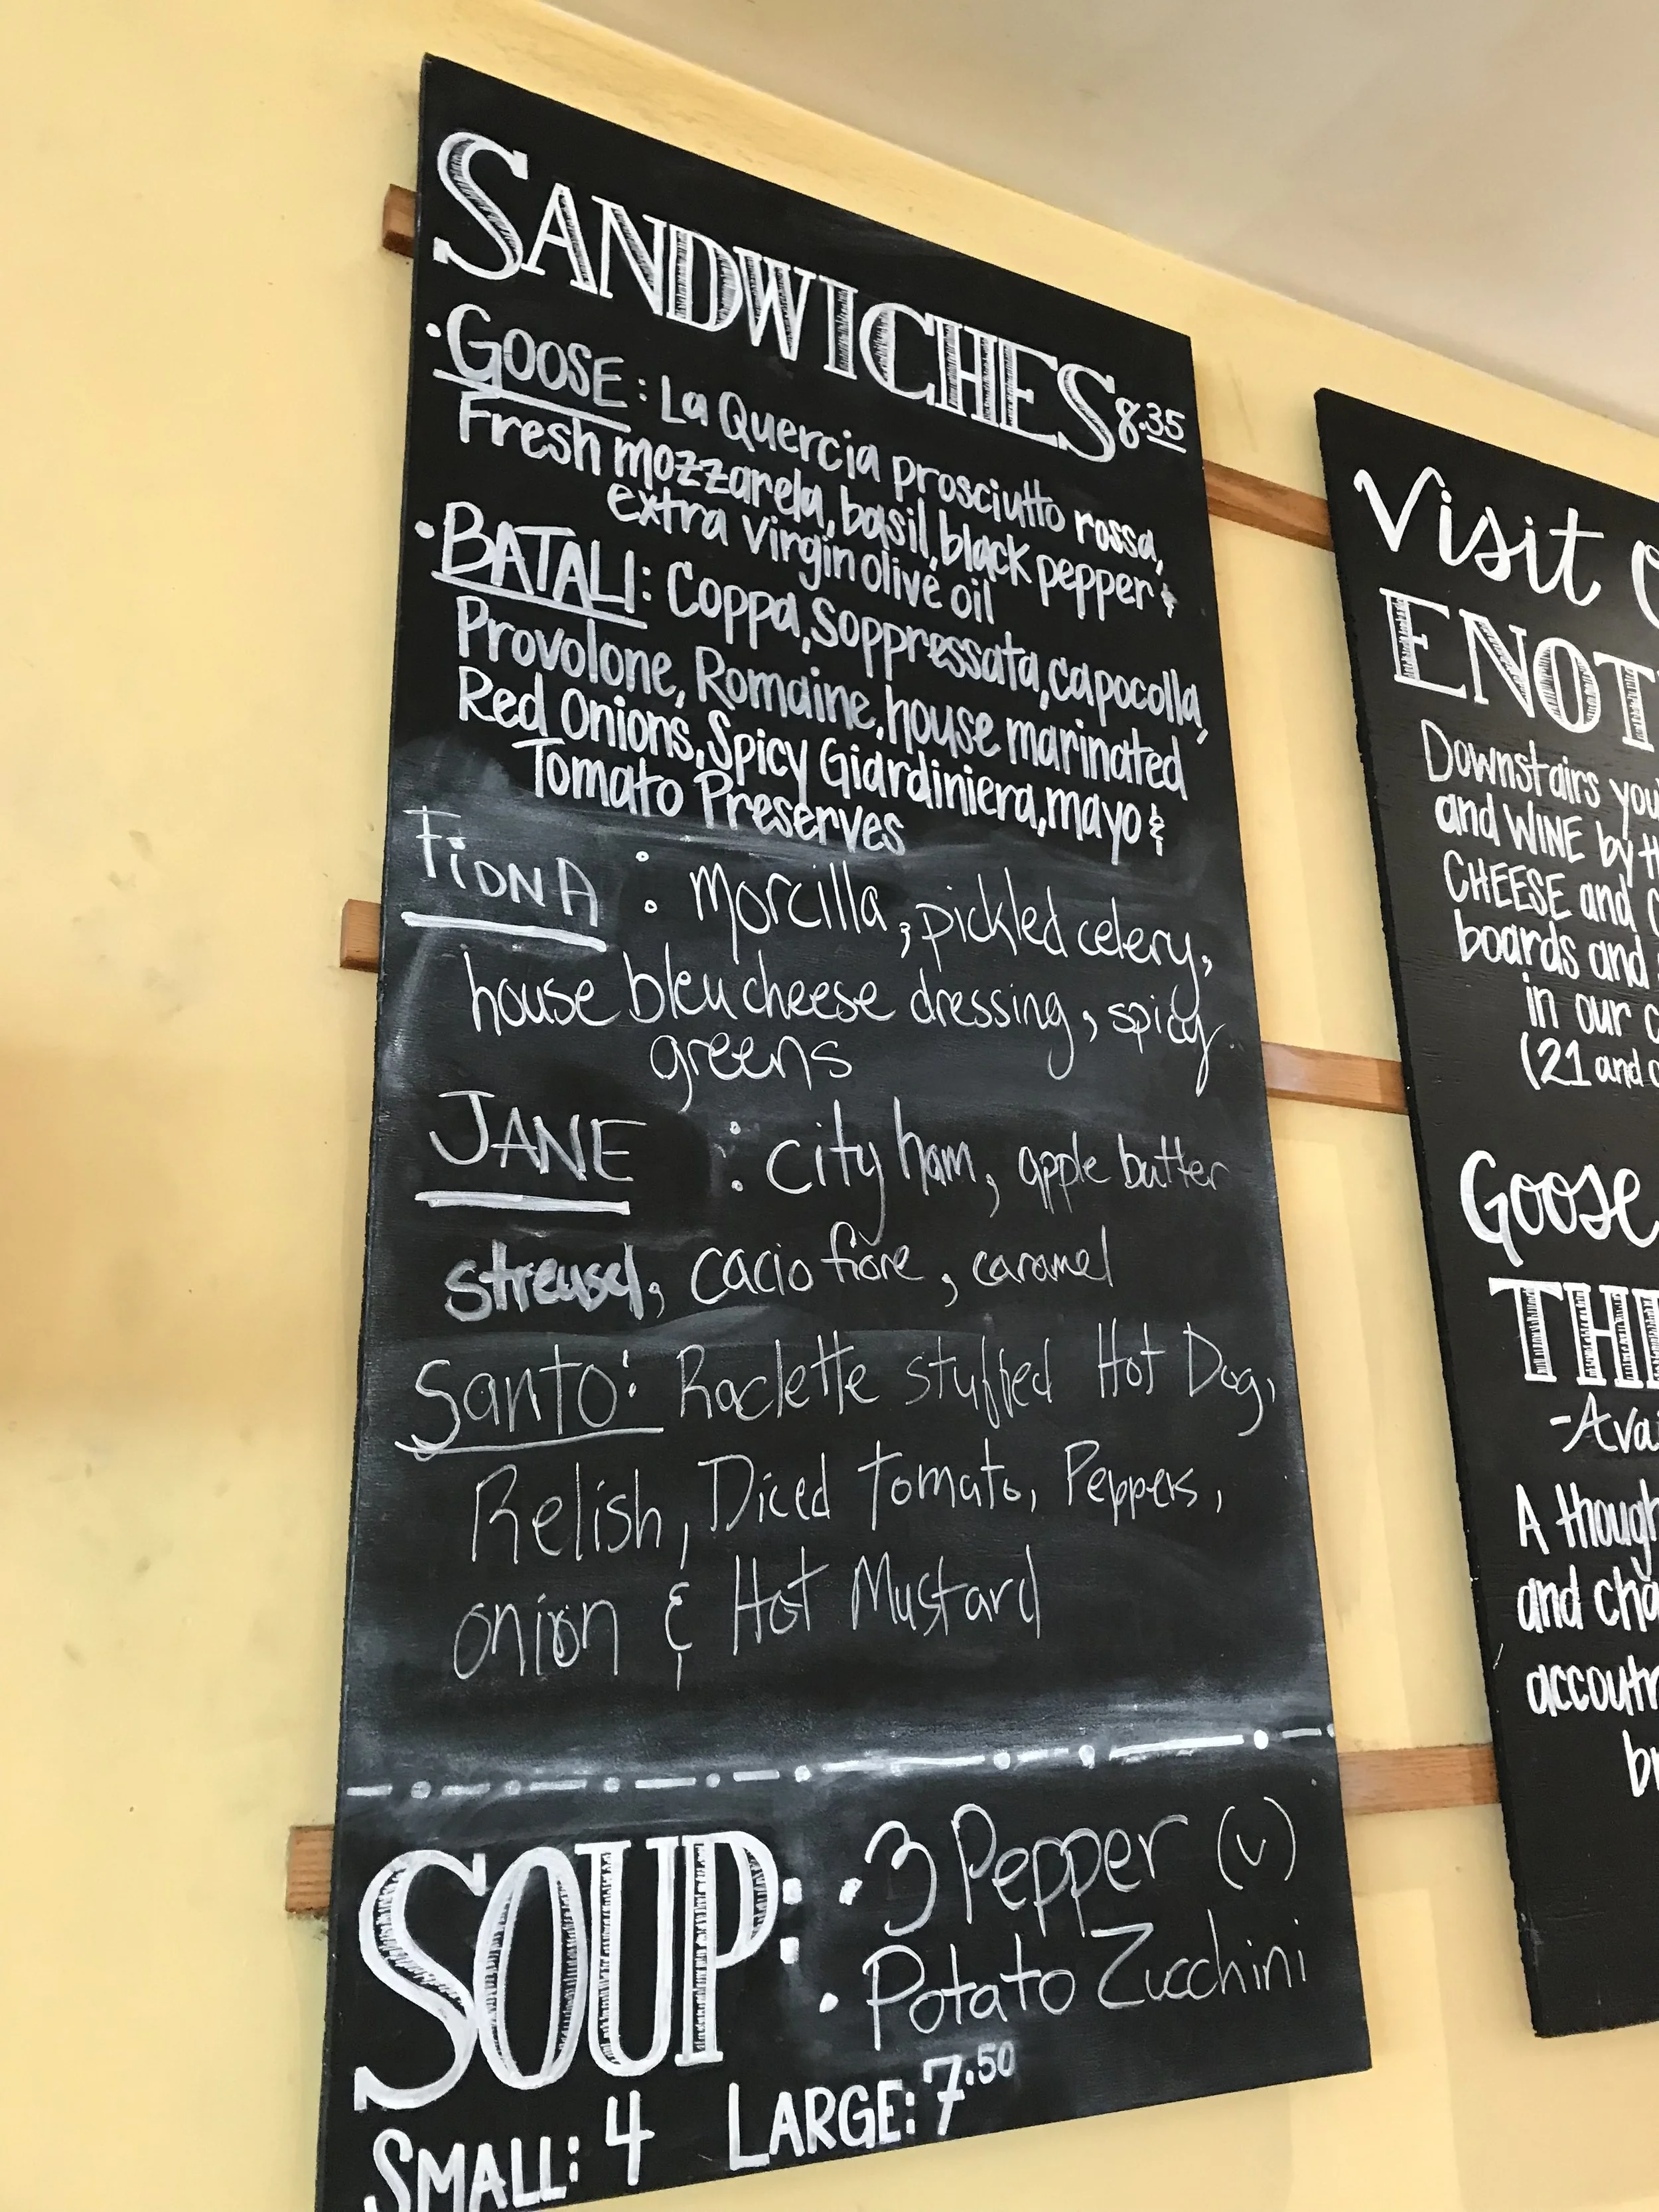 SANDWICHES 8.35
• GOOSE: La Quercia prosciutto rossa,
Fresh mozzarela, basil, black pepper &
extra Virgin olive oil
• BATALI: Coppa, Soppressata, capocolla,
Provolone, Romaine, house marinated
Red Onions, Spicy Giardiniera, mayo &
Tomato Preserves
FiONA : morcilla, pickled celery,
house bleu cheese dressing, spicy
greens
JANE : city ham, apple butter
streusel, cacio fiore, caramel
Santo: Raclette stuffed Hot Dog,
Relish, Diced tomato, Peppers,
onion & Hot Mustard
SOUP: • 3 Pepper (v)
• Potato Zucchini
SMALL: 4 LARGE: 7.50
Visit
ENOT
Downstairs you
and WINE by
CHEESE and
boards and
in our
(21 and
Goose
TH
-Avai
A though
and cha
accoutr
br